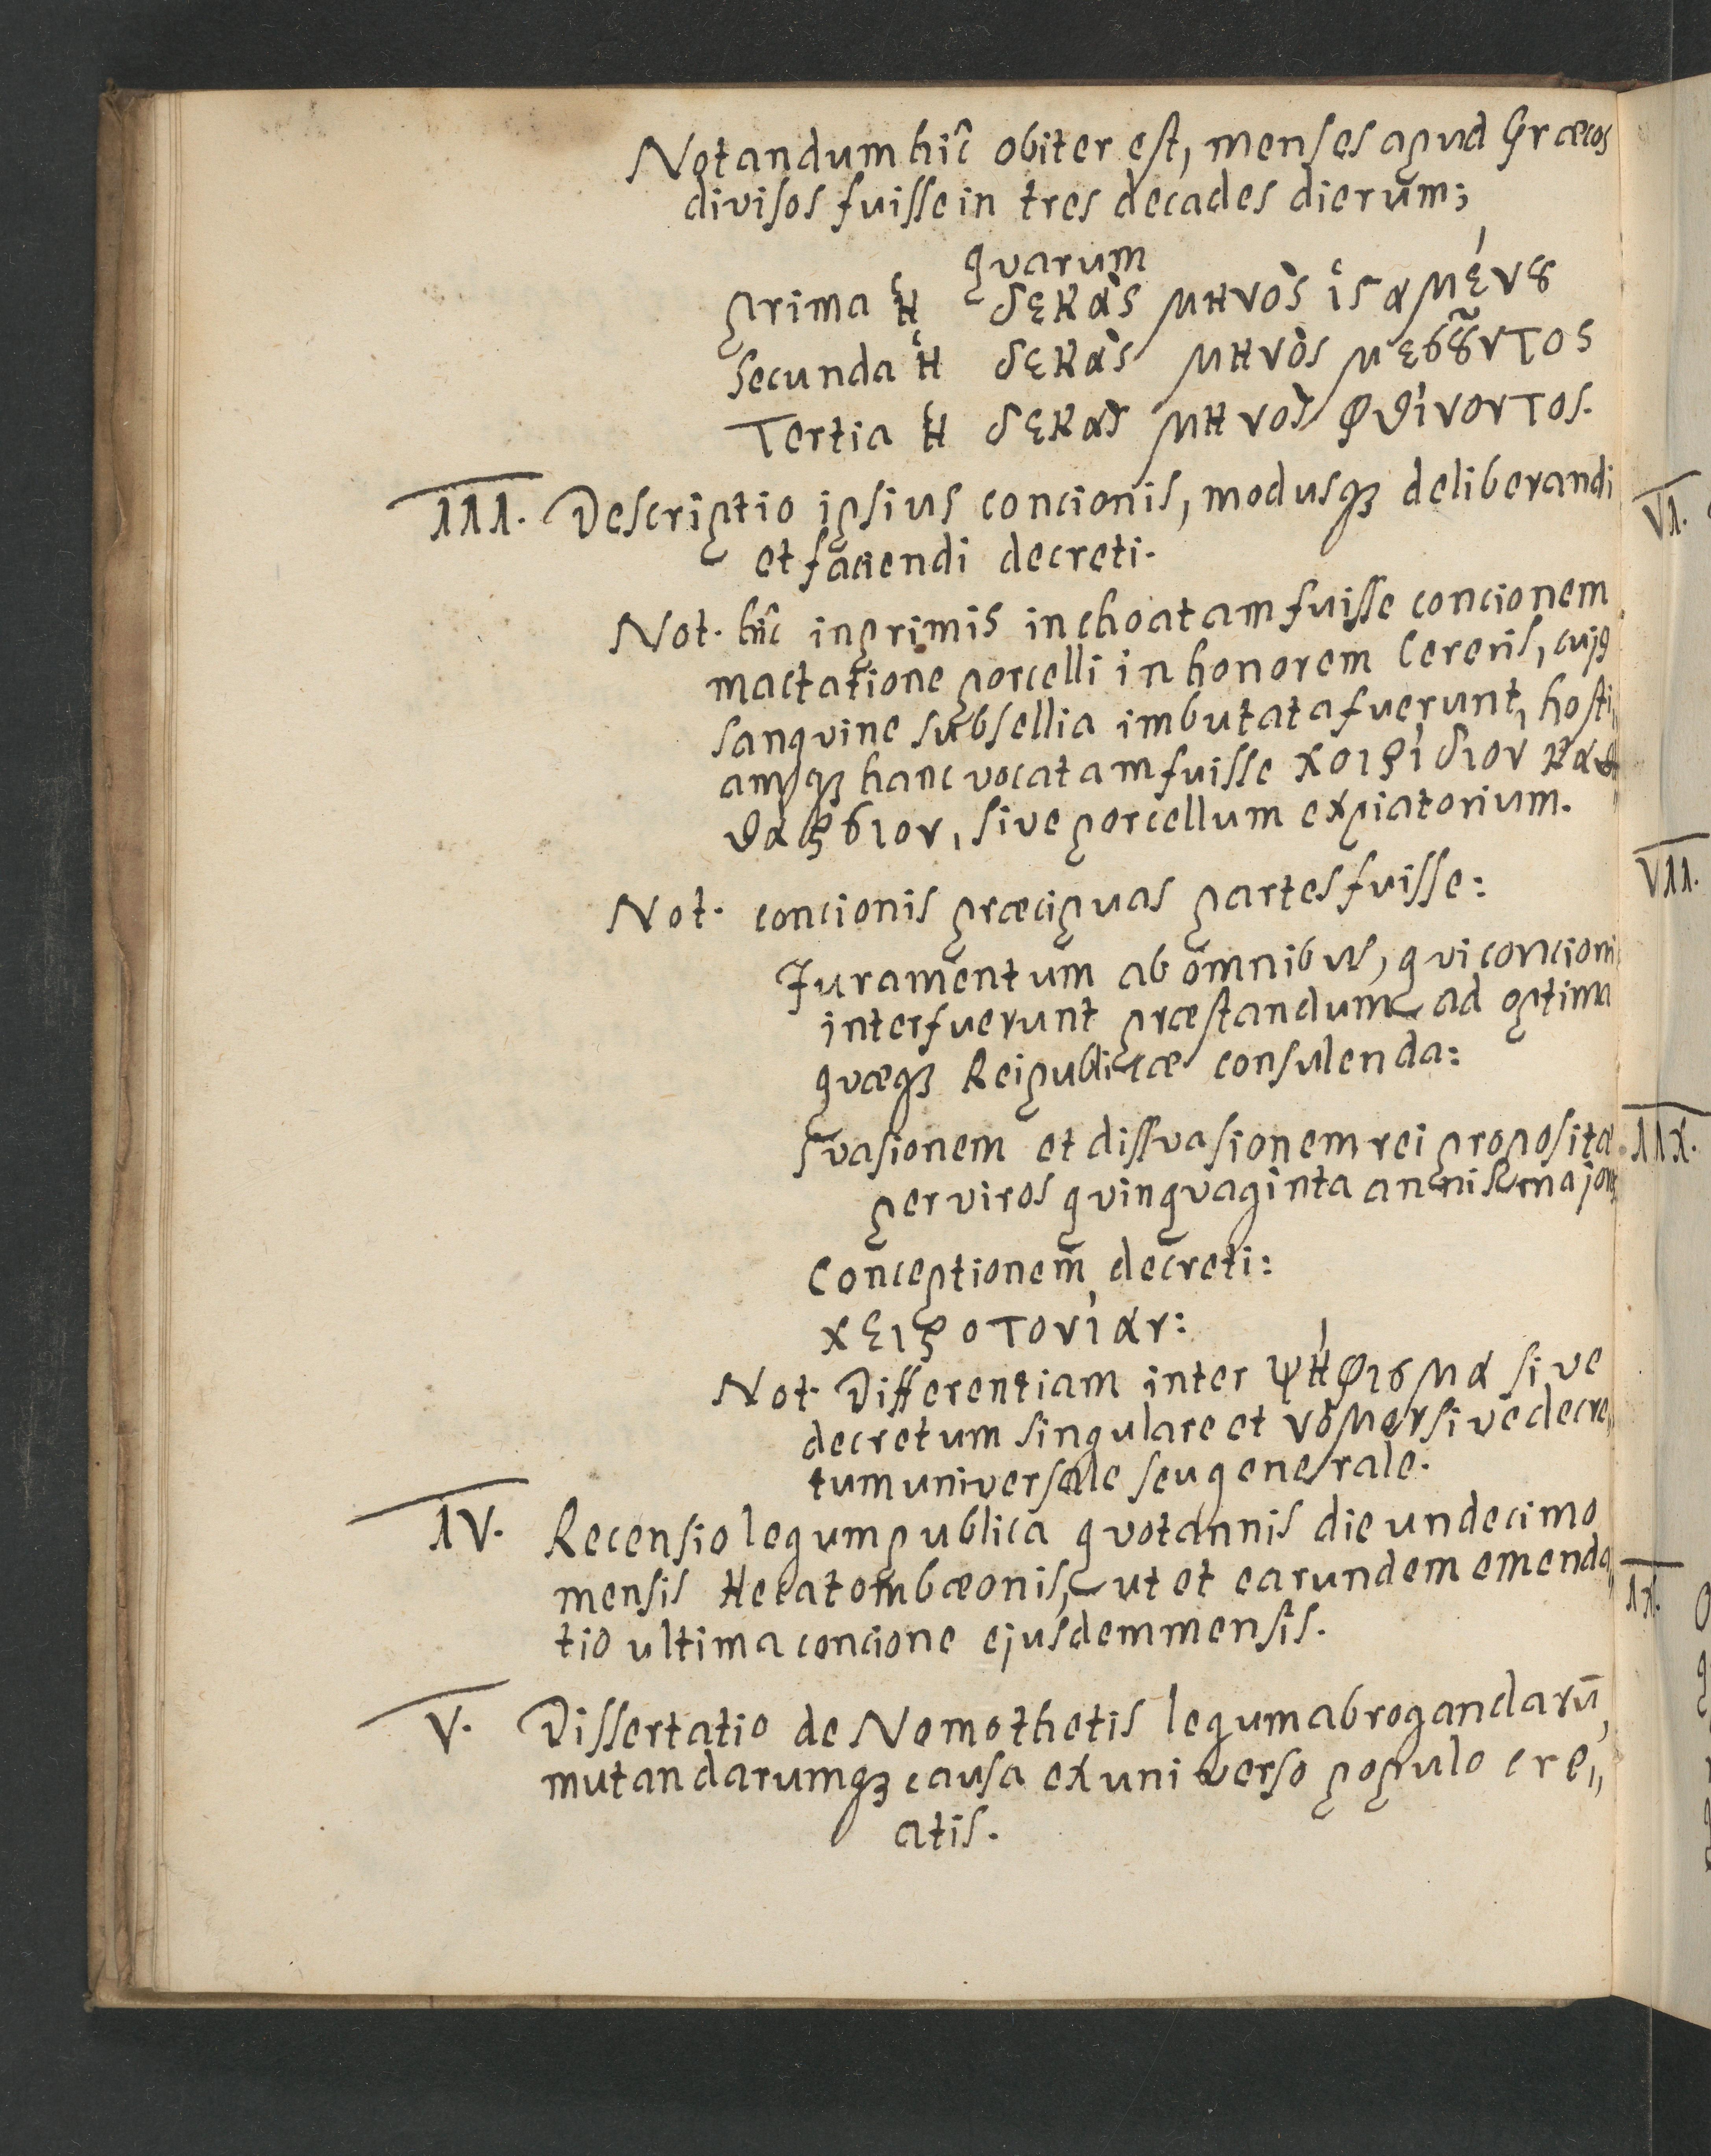 Notandum hîc obiter est, menses apud Græcos
divisos fuisse in tres decades dierum;
qvarum
prima ἡ δεκὰς μηνὸς ἱϛαμένȣ
Secunda ἡ δεκὰς μηνὸς μεσȣ̃ντος
Tertia ἡ δεκὰς μηνὸς φθίνοντος.
III. Descriptio ipsius concionis, modusqꝫ deliberandi
et faciendi decreti.
Not. hîc inprimis inchoatam fuisse concionem
mactatione porcelli in honorem Cereris, cujꝰ
sanqvine subsellia imbutata fuerunt, hosti„
amqꝫ hanc vocatam fuisse χοιρίδιον κα„
θάρσιον, sive porcellum expiatorium.
Not. concionis præcipuas partes fuisse:
Juramentum ab omnibus, qvi concioni
interfuerunt præstandum ad optima
qvæqꝫ Reipublicæ consulenda:
Svasionem et dissvasionem rei propositæ
per viros qvinqvaginta annis majores
Conceptionem decreti:
χειροτονίαν:
Not. Differentiam inter ψήφισμα sive
decretum singulare et νόμον sive decre„
tum universale seu generale.
IV. Recensio legum publica qvotannis die undecimo
mensis Hecatombæonis, ut et earundem emenda„
tio ultima concione ejusdem mensis.
V. Dissertatio de Nomothetis legum abrogandarū,
mutandarumqꝫ causa ex universo populo cre„
atis.
VI.
VII.
IIX.
IX.